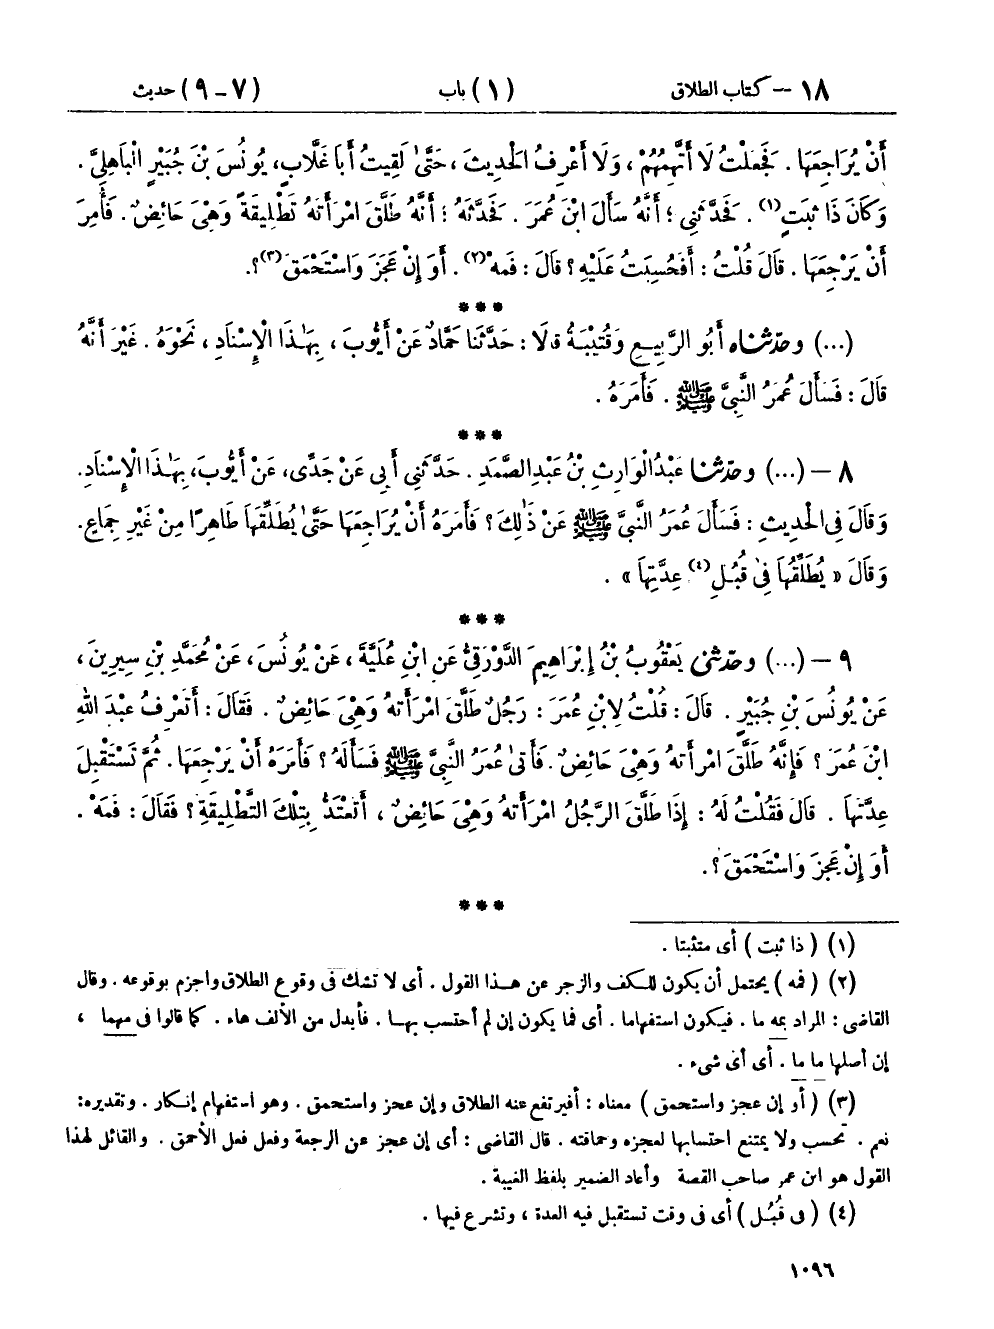 ١٨ – كتاب الطلاق (١) باب (٧ – ٩) حديث
أَنْ يُرَاجِعَهَا . فَجَعَلْتُ لَا أَتَّهِمُهُمْ ، وَلَا أَعْرِفُ الْحَدِيثَ ، حَتَّىٰ لَقِيتُ أَبَا غَلَّابٍ ، يُونُسَ بْنَ جُبَيْرٍ الْبَاهِلِيَّ .
وَكَانَ ذَا ثَبَتٍ(١) . فَحَدَّثَنِي ؛ أَنَّهُ سَأَلَ ابْنَ عُمَرَ . فَحَدَّثَهُ ؛ أَنَّهُ طَلَّقَ امْرَأَتَهُ تَطْلِيقَةً وَهْيَ حَائِضٌ . فَأُمِرَ
أَنْ يَرْجِعَهَا . قَالَ قُلْتُ : أَفَحُسِبَتْ عَلَيْهِ ؟ قَالَ : فَمَهْ(٢) . أَوَ إِنْ عَجَزَ وَاسْتَحْمَقَ(٣) ؟.
***
(...) وحدّثناه أَبُو الرَّبِيعِ وَقُتَيْبَةُ قَالَا : حَدَّثَنَا حَمَّادٌ عَنْ أَيُّوبَ ، بِهَٰذَا الْإِسْنَادِ ، نَحْوَهُ . غَيْرَ أَنَّهُ
قَالَ : فَسَأَلَ عُمَرُ النَّبِيَّ ﷺ . فَأَمَرَهُ .
***
٨ – (...) وحدّثنا عَبْدُ الْوَارِثِ بْنُ عَبْدِ الصَّمَدِ . حَدَّثَنِي أَبِي عَنْ جَدِّي ، عَنْ أَيُّوبَ ، بِهَٰذَا الْإِسْنَادِ .
وَقَالَ فِي الْحَدِيثِ : فَسَأَلَ عُمَرُ النَّبِيَّ ﷺ عَنْ ذَٰلِكَ ؟ فَأَمَرَهُ أَنْ يُرَاجِعَهَا حَتَّىٰ يُطَلِّقَهَا طَاهِرًا مِنْ غَيْرِ جِمَاعٍ .
وَقَالَ « يُطَلِّقُهَا فِي قُبُلِ(٤) عِدَّتِهَا » .
***
٩ – (...) وحدّثني يَعْقُوبُ بْنُ إِبْرَاهِيمَ الدَّوْرَقِيُّ عَنِ ابْنِ عُلَيَّةَ ، عَنْ يُونُسَ ، عَنْ مُحَمَّدِ بْنِ سِيرِينَ ،
عَنْ يُونُسَ بْنِ جُبَيْرٍ . قَالَ : قُلْتُ لِابْنِ عُمَرَ : رَجُلٌ طَلَّقَ امْرَأَتَهُ وَهْيَ حَائِضٌ . فَقَالَ : أَتَعْرِفُ عَبْدَ اللهِ
ابْنَ عُمَرَ ؟ فَإِنَّهُ طَلَّقَ امْرَأَتَهُ وَهْيَ حَائِضٌ . فَأَتَىٰ عُمَرُ النَّبِيَّ ﷺ فَسَأَلَهُ ؟ فَأَمَرَهُ أَنْ يَرْجِعَهَا . ثُمَّ تَسْتَقْبِلَ
عِدَّتَهَا . قَالَ فَقُلْتُ لَهُ : إِذَا طَلَّقَ الرَّجُلُ امْرَأَتَهُ وَهْيَ حَائِضٌ ، أَتَعْتَدُّ بِتِلْكَ التَّطْلِيقَةِ ؟ فَقَالَ : فَمَهْ .
أَوَ إِنْ عَجَزَ وَاسْتَحْمَقَ ؟.
***
(١) ( ذا ثبت ) أى متثبتا .
(٢) ( فمه ) يحتمل أن يكون للكف والزجر عن هذا القول . أى لا تشك فى وقوع الطلاق واجزم بوقوعه . وقال
القاضى : المراد بمه ما . فيكون استفهاما . أى فما يكون إن لم أحتسب بها . فأبدل من الألف هاء . كما قالوا فى مهما ،
إن أصلها ما ما . أى أى شىء .
(٣) ( أو إن عجز واستحمق ) معناه : أفيرتفع عنه الطلاق وإن عجز واستحمق . وهو استفهام إنكار . وتقديره :
نعم . تحسب ولا يمتنع احتسابها لعجزه وحماقته . قال القاضى : أى إن عجز عن الرجعة وفعل فعل الأحمق . والقائل لهذا
القول هو ابن عمر صاحب القصة وأعاد الضمير بلفظ الغيبة .
(٤) ( فى قُبُل ) أى فى وقت تستقبل فيه العدة ، وتشرع فيها .
١٠٩٦